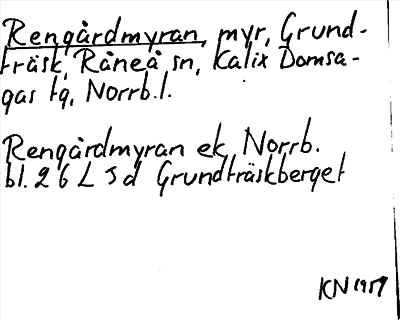 Rengårdmyran, myr, Grund-
träsk, Råneå sn, Kalix Domsa-
gas tg, Norrb.l.
Rengårdmyran ek Norrb.
bl. 26 L 5 d Grundträskberget
KN 1959